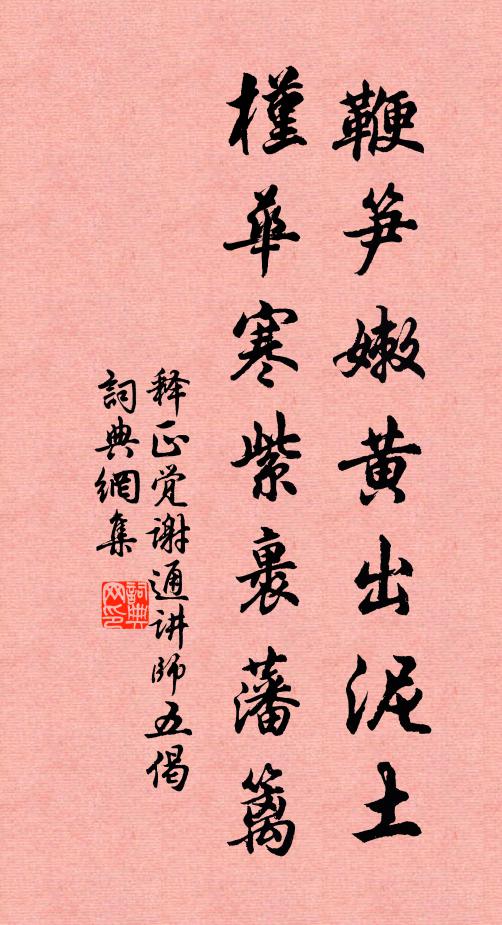 鞭笋嫩黄出泥土
槿華寒紫裹藩籬
释正觉谢通讲師五偈
詞典網集
詞典
网印